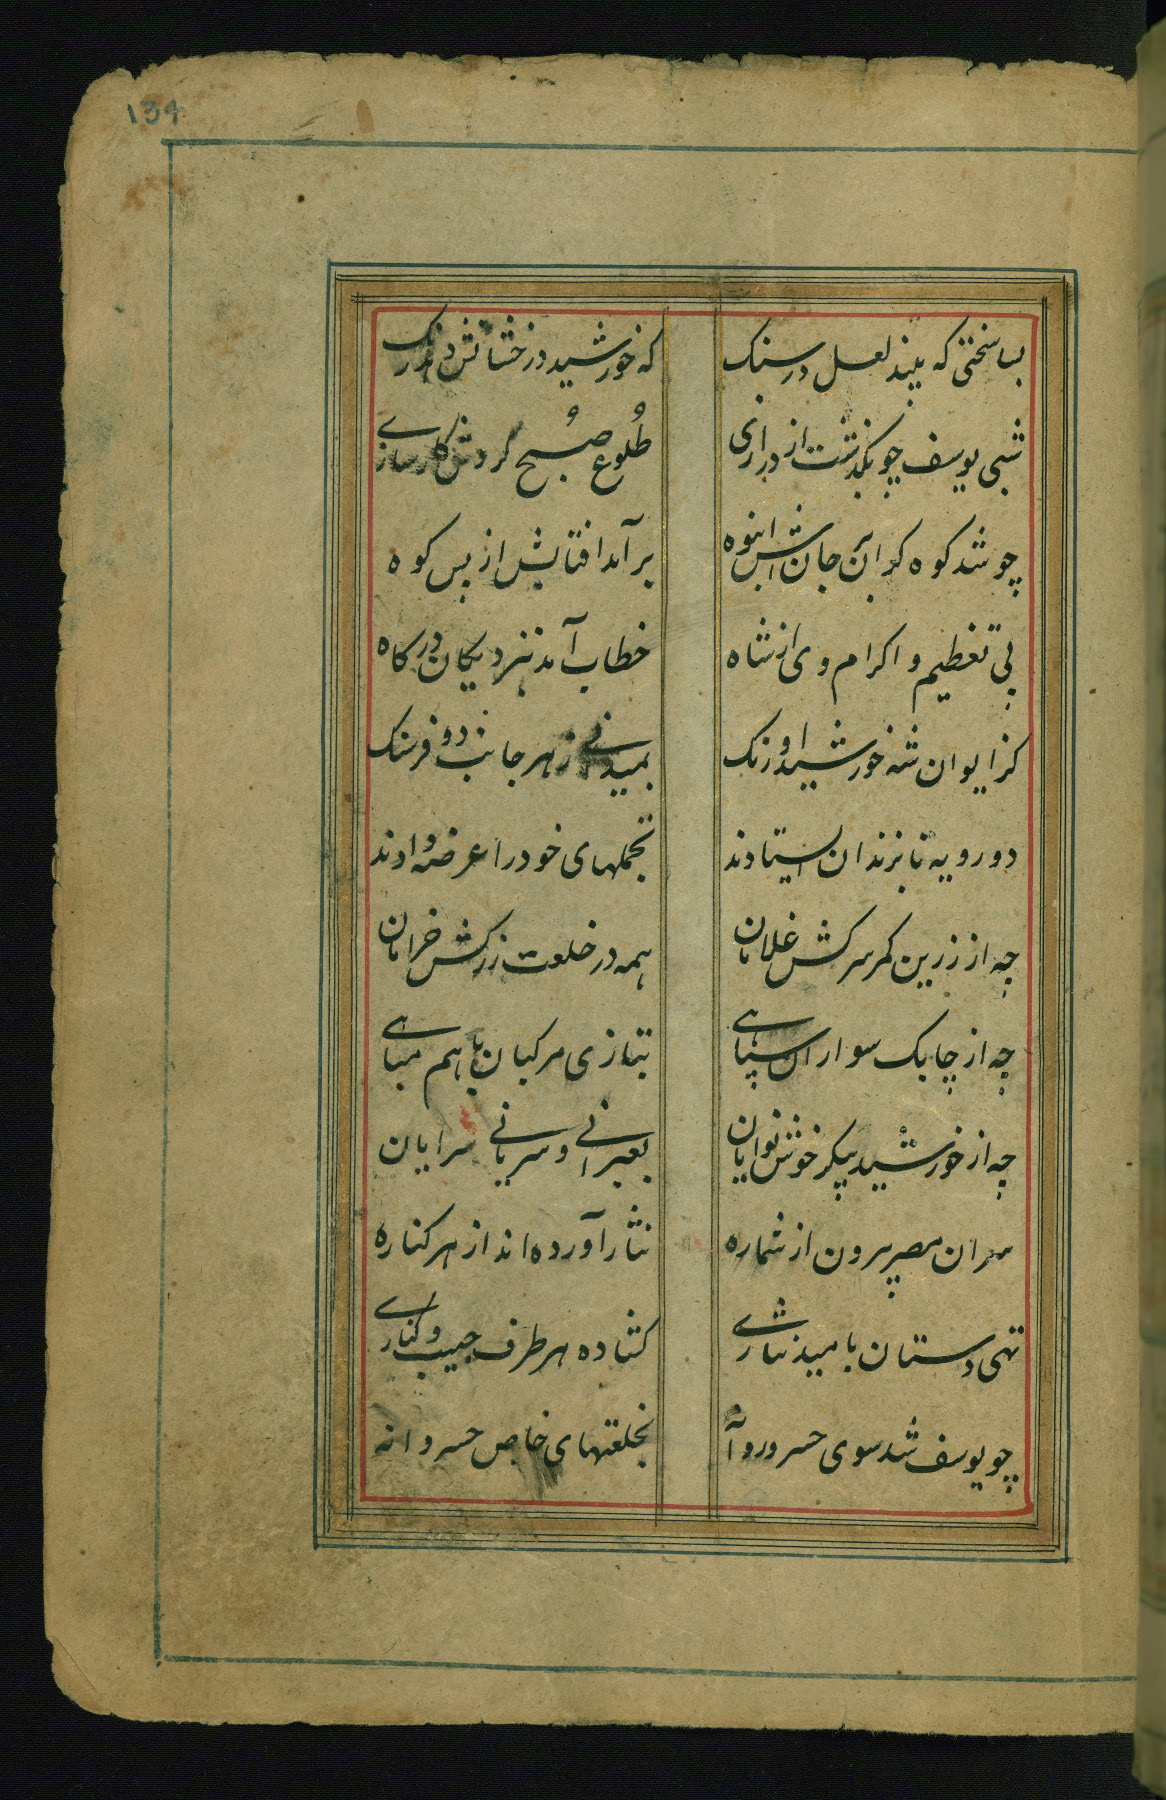 134
بسا سختی که بیند لعل در سنک که خورشید درخشانش دهد رنک
شبی یوسف چو بگذشت از درازی طلوع صُبح کردش کارسازے
چو شد کوه کران بر جانش انبوه برآمد افتابش از پس کوه
پی تعظیم و اکرام وی از شاه خطاب آمد بنزدیکان درکاه
کز ایوان شه خورشید اورنک بمیدانی ز هر جانب دو فرسنک
دو رویه تا بزندان ایستادند تجملهای خود را عرضه دادند
چه از زرین کمر سرکش غلامان همه در خلعت زرکش خرامان
چه از چابک سواران سپاهے بتازی مرکبان باهم مباهے
چه از خورشید پیکر خوش نوایان بعبرانے و سریانے سرایان
سران مصر بیرون از شماره نثار آورده اند از هر کناره
تهی دستان بامید نثارے کشاده هر طرف جیب و کنارے
چو یوسف شد سوی خسرو روآ بخلعتهای خاص خسروانه